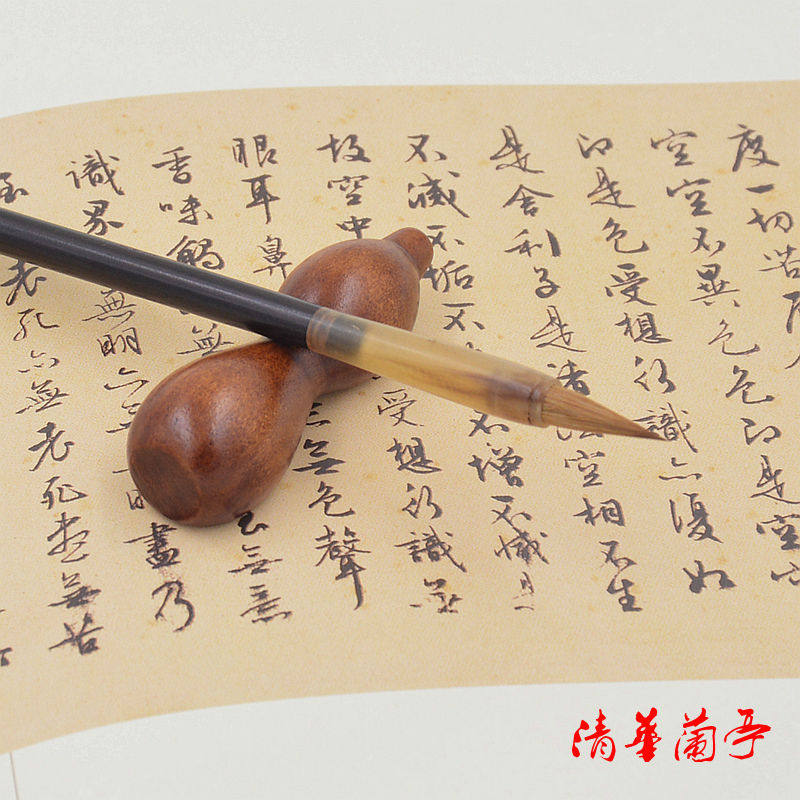 度一切苦厄
空空不異色色即是空空
即是色受想行識亦復如
是舍利子是諸法空相不生
不滅不垢不不增不減是
故空中受想行識無
眼耳鼻無色聲
香味觸無至無意
識界無明亦無明盡乃
至老死亦無老死盡無苦
清華蘭亭